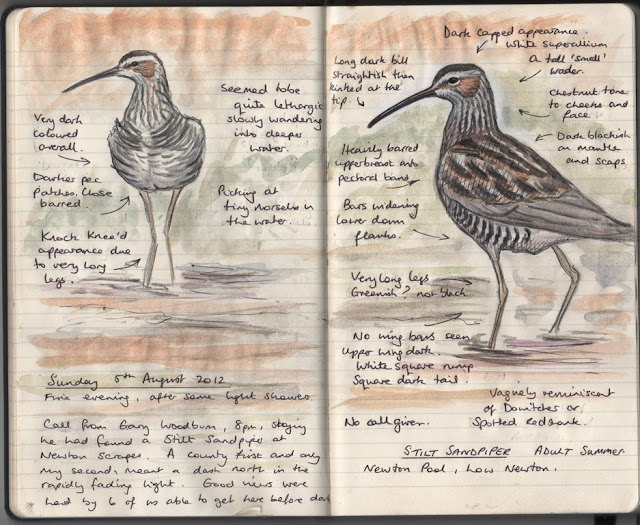 Very dark
coloured
overall.
Darker pec
patches. Close
barred.
Knock Knee'd
appearance due
to very long
legs.
Seemed to be
quite lethargic
slowly wandering
into deeper
water.
Picking at
tiny morsels in
the water.
Sunday 5th August 2012
Fine evening, after some light showers.
Call from Gary Woodburn, 8pm, saying
he had found a Stilt Sandpiper at
Newton Scrapes. A county first and only
my second, meant a dash north in the
rapidly fading light. Good views were
had by 6 of us able to get here before dark
Dark capped appearance.
White supercillium
Long dark bill
straightish then
kinked at the
tip.
A tall 'small'
wader.
Chestnut tone
to cheeks and
face.
Dark blackish
on mantle
and scaps.
Heavily barred
upperbreast onto
pectoral band.
Bars widening
lower down
flanks.
Very long legs
Greenish? not black
No wing bars seen
Upper wing dark.
White square rump
Square dark tail.
Vaguely reminiscent
of Dowitcher or
Spotted Redshank.
No call given.
STILT SANDPIPER ADULT SUMMER
Newton Pool, Low Newton.